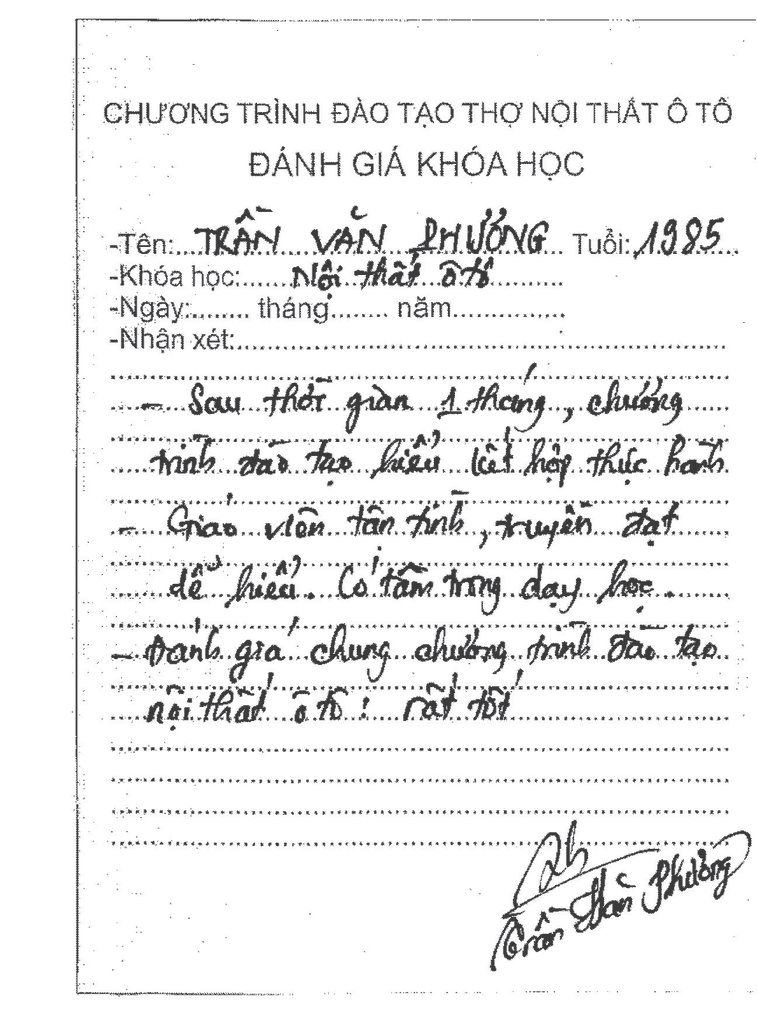 CHƯƠNG TRÌNH ĐÀO TẠO THỢ NỘI THẤT Ô TÔ
ĐÁNH GIÁ KHÓA HỌC
-Tên: TRẦN VĂN PHƯỞNG Tuổi: 1985
-Khóa học: Nội thất ô tô
-Ngày:........ tháng........ năm...............
-Nhận xét:
- Sau thời gian 1 tháng, chương
trình đào tạo hiểu kết hợp thực hành
- Giáo viên tận tình, truyền đạt
dễ hiểu. Có tâm trong dạy học.
- Đánh giá chung chương trình đào tạo
nội thất ô tô: rất tốt
Trần Phưởng